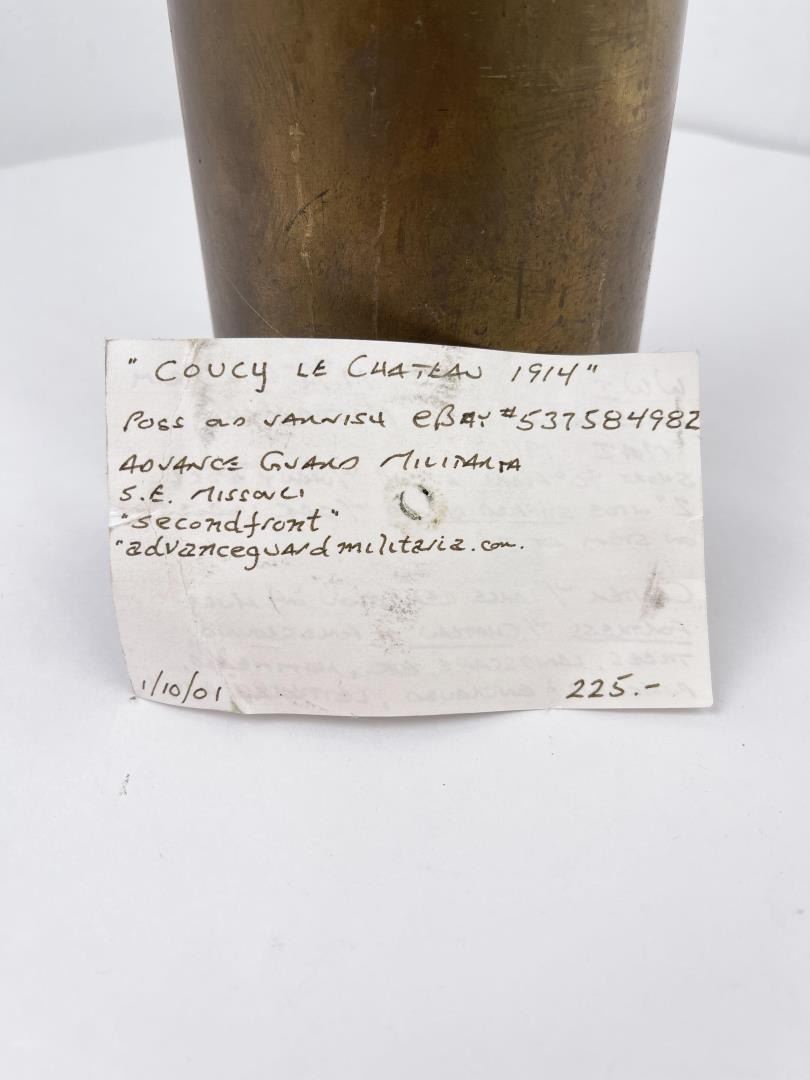 "COUCY LE CHATEAU 1914"
POSS OLD VARNISH eBAY #537584982
ADVANCE GUARD MILITARIA
S.E. MISSOURI
"secondfront"
"advanceguardmilitaria.com.
1/10/01 225.-